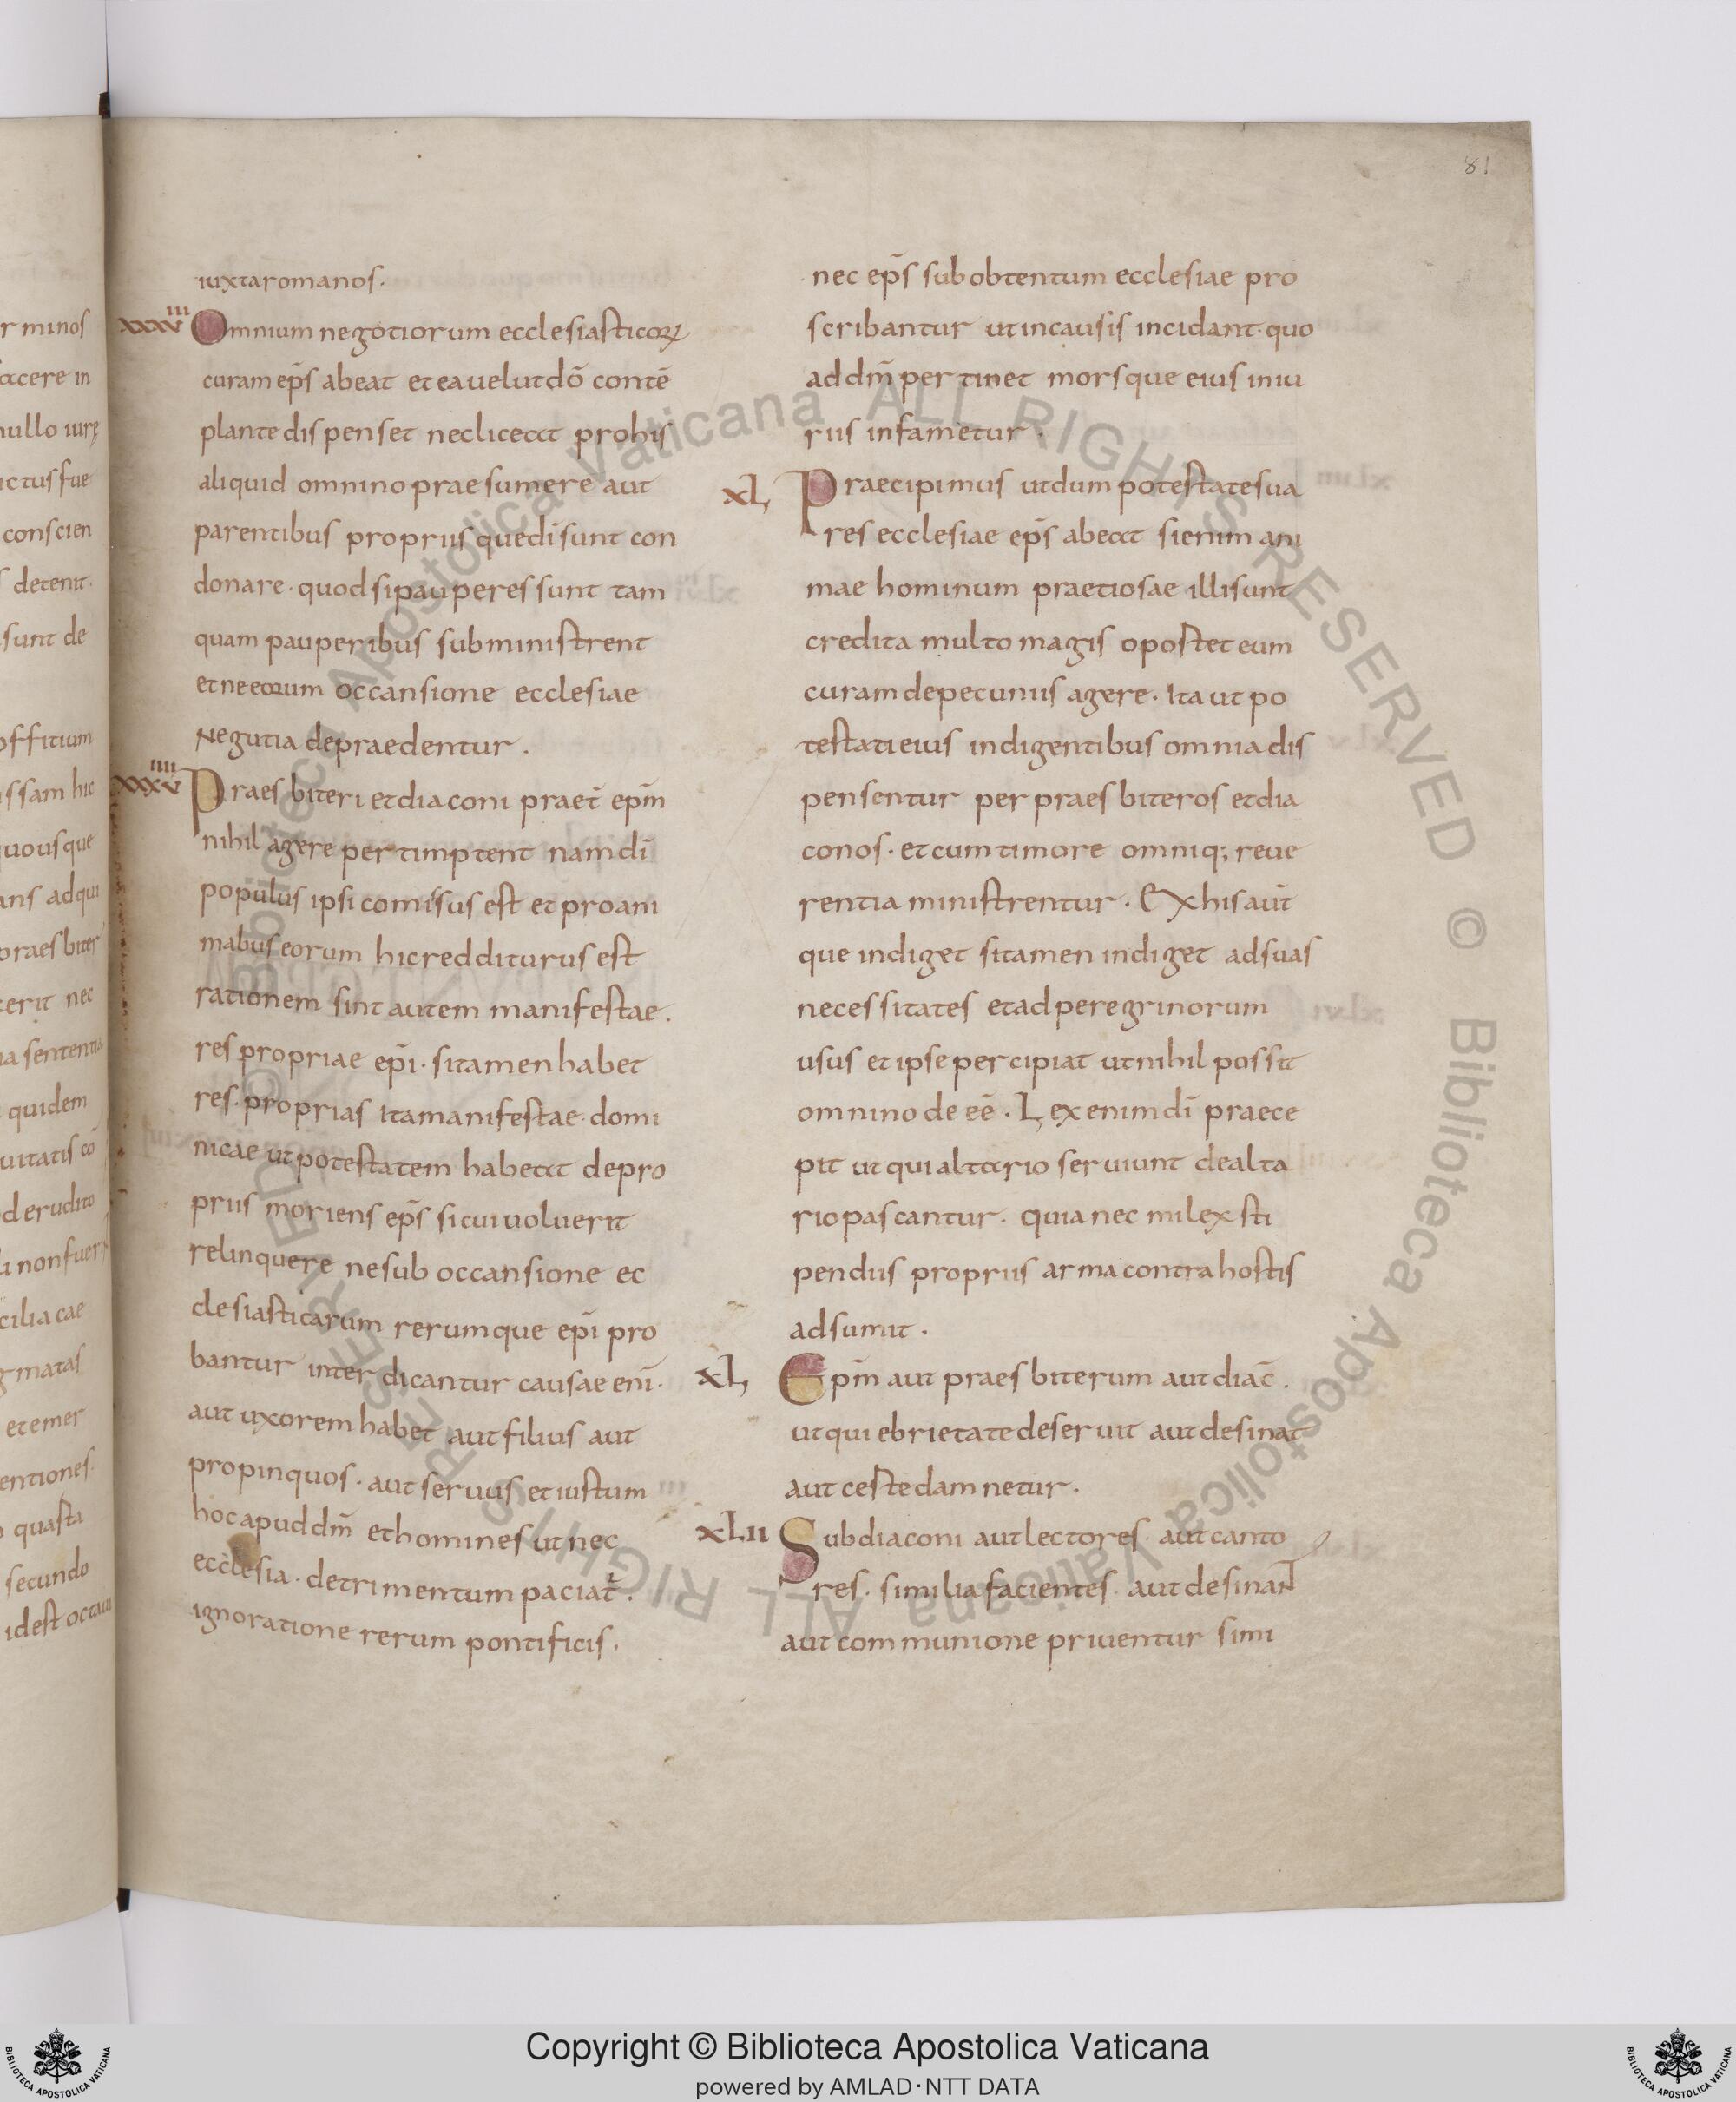 81
iuxtaromanos.
xxxviii Omnium negotiorum ecclesiasticoꝝ
curam ep̄s abeat et ea uelut dō contē
plante dispenset nec liceat pro his
aliquid omnino praesumere aut
parentibus propriis que dī sunt con
donare · quod si pauperes sunt tam
quam pauperibus subministrent
et ne eorum occansione ecclesiae
Negutia depraedentur .
xxxviiii Praesbiteri et diaconi praet̄ ep̄m
nihil agere pertimptent nam dī
populus ipsi comisus est et pro ani
mabus eorum hic redditurus est
rationem sint autem manifestae .
res propriae ep̄i · si tamen habet
res · proprias ita manifestae · domi
nicae ut potestatem habeat de pro
priis moriens ep̄s si cui uoluerit
relinquere ne sub occansione ec
clesiasticarum rerumque ep̄i pro
bantur inter dicantur causae enī ·
aut uxorem habet aut filius aut
propinquos · aut seruus et iustum
hoc apud dm̄ et homines ut nec
ecclesia · detrimentum paciat̄ .
ignoratione rerum pontificis .
nec ep̄s sub obtentum ecclesiae pro
scribantur ut in causis incidant · quo
ad dm̄ pertinet morsque eius iniu
riis infametur .
xL Praecipimus ut dum potestate sua
res ecclesiae ep̄s abeat si enim ani
mae hominum praetiosae illi sunt
credita multo magis opostet eum
curam de pecuniis agere · Ita ut po
testati eius indigentibus omnia dis
pensentur per praesbiteros et dia
conos · et cum timore omniq; reue
rentia ministrentur . Ex his aūt
que indiget si tamen indiget ad suas
necessitates et ad peregrinorum
usus et ipse percipiat ut nihil possit
omnino de eē . Lex enim dī praece
pit ut qui altario seruiunt de alta
rio pascantur . quia nec milex sti
pendiis propriis arma contra hostis
adsumit .
xL Ep̄m aut praesbiterum aut diac̄ .
ut qui ebrietate deseruit aut desinat
aut ceste damnetur .
xLii Subdiaconi aut lectores · aut canto
res · similia facientes · aut desinant
aut communione priuentur simi
Copyright © Biblioteca Apostolica Vaticana
powered by AMLAD·NTT DATA